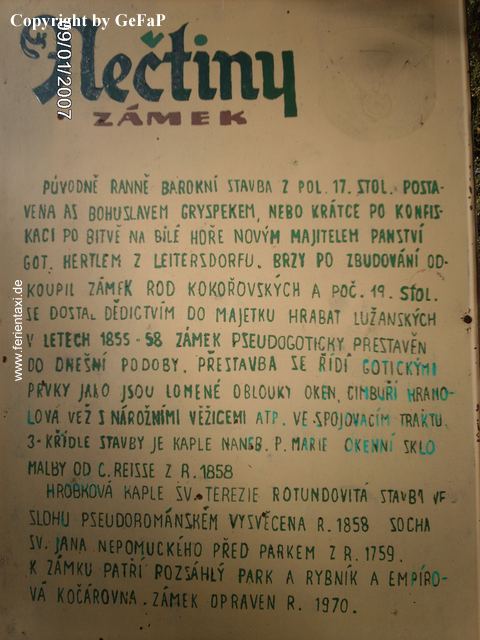 Copyright by GeFaP
09/01/2007
www.ferientaxi.de
Nečtiny
ZÁMEK
PŮVODNĚ RANNĚ BAROKNÍ STAVBA Z POL. 17. STOL. POSTA-
VENA AS BOHUSLAVEM GRYSPEKEM, NEBO KRÁTCE PO KONFIS-
KACI PO BITVĚ NA BÍLÉ HOŘE NOVÝM MAJITELEM PANSTVÍ
GOT. HERTLEM Z LEITERSDORFU. BRZY PO ZBUDOVÁNÍ OD-
KOUPIL ZÁMEK ROD KOKOŘOVSKÝCH A POČ. 19. STOL.
SE DOSTAL DĚDICTVÍM DO MAJETKU HRABAT LUŽANSKÝCH
V LETECH 1855-58 ZÁMEK PSEUDOGOTICKY PŘESTAVĚN
DO DNEŠNÍ PODOBY. PŘESTAVBA SE ŘÍDÍ GOTICKÝMI
PRVKY JAKO JSOU LOMENÉ OBLOUKY OKEN, CIMBUŘÍ HRANO-
LOVÁ VEŽ S NÁROŽNÍMI VĚŽICEMI ATP. VE SPOJOVACÍM TRAKTU
3-KŘÍDLE STAVBY JE KAPLE NANEB. P. MARIE OKENNÍ SKLO
MALBY OD C. REISSE Z R. 1858
HROBKOVÁ KAPLE SV. TEREZIE ROTUNDOVITÁ STAVBA VE
SLOHU PSEUDOROMÁNSKÉM VYSVĚCENA R. 1858 SOCHA
SV. JANA NEPOMUCKÉHO PŘED PARKEM Z R. 1759.
K ZÁMKU PATŘÍ ROZSÁHLÝ PARK A RYBNÍK A EMPÍRO-
VÁ KOČÁROVNA. ZÁMEK OPRAVEN R. 1970.